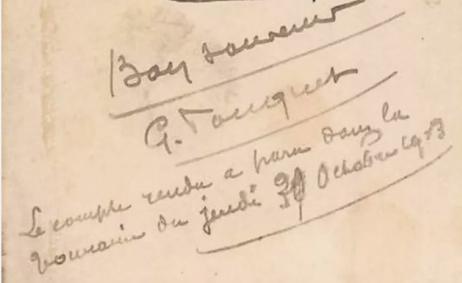 Bon souvenir
G.
Le compte rendu a paru dans la
Touraine du jeudi 30 Octobre 1913